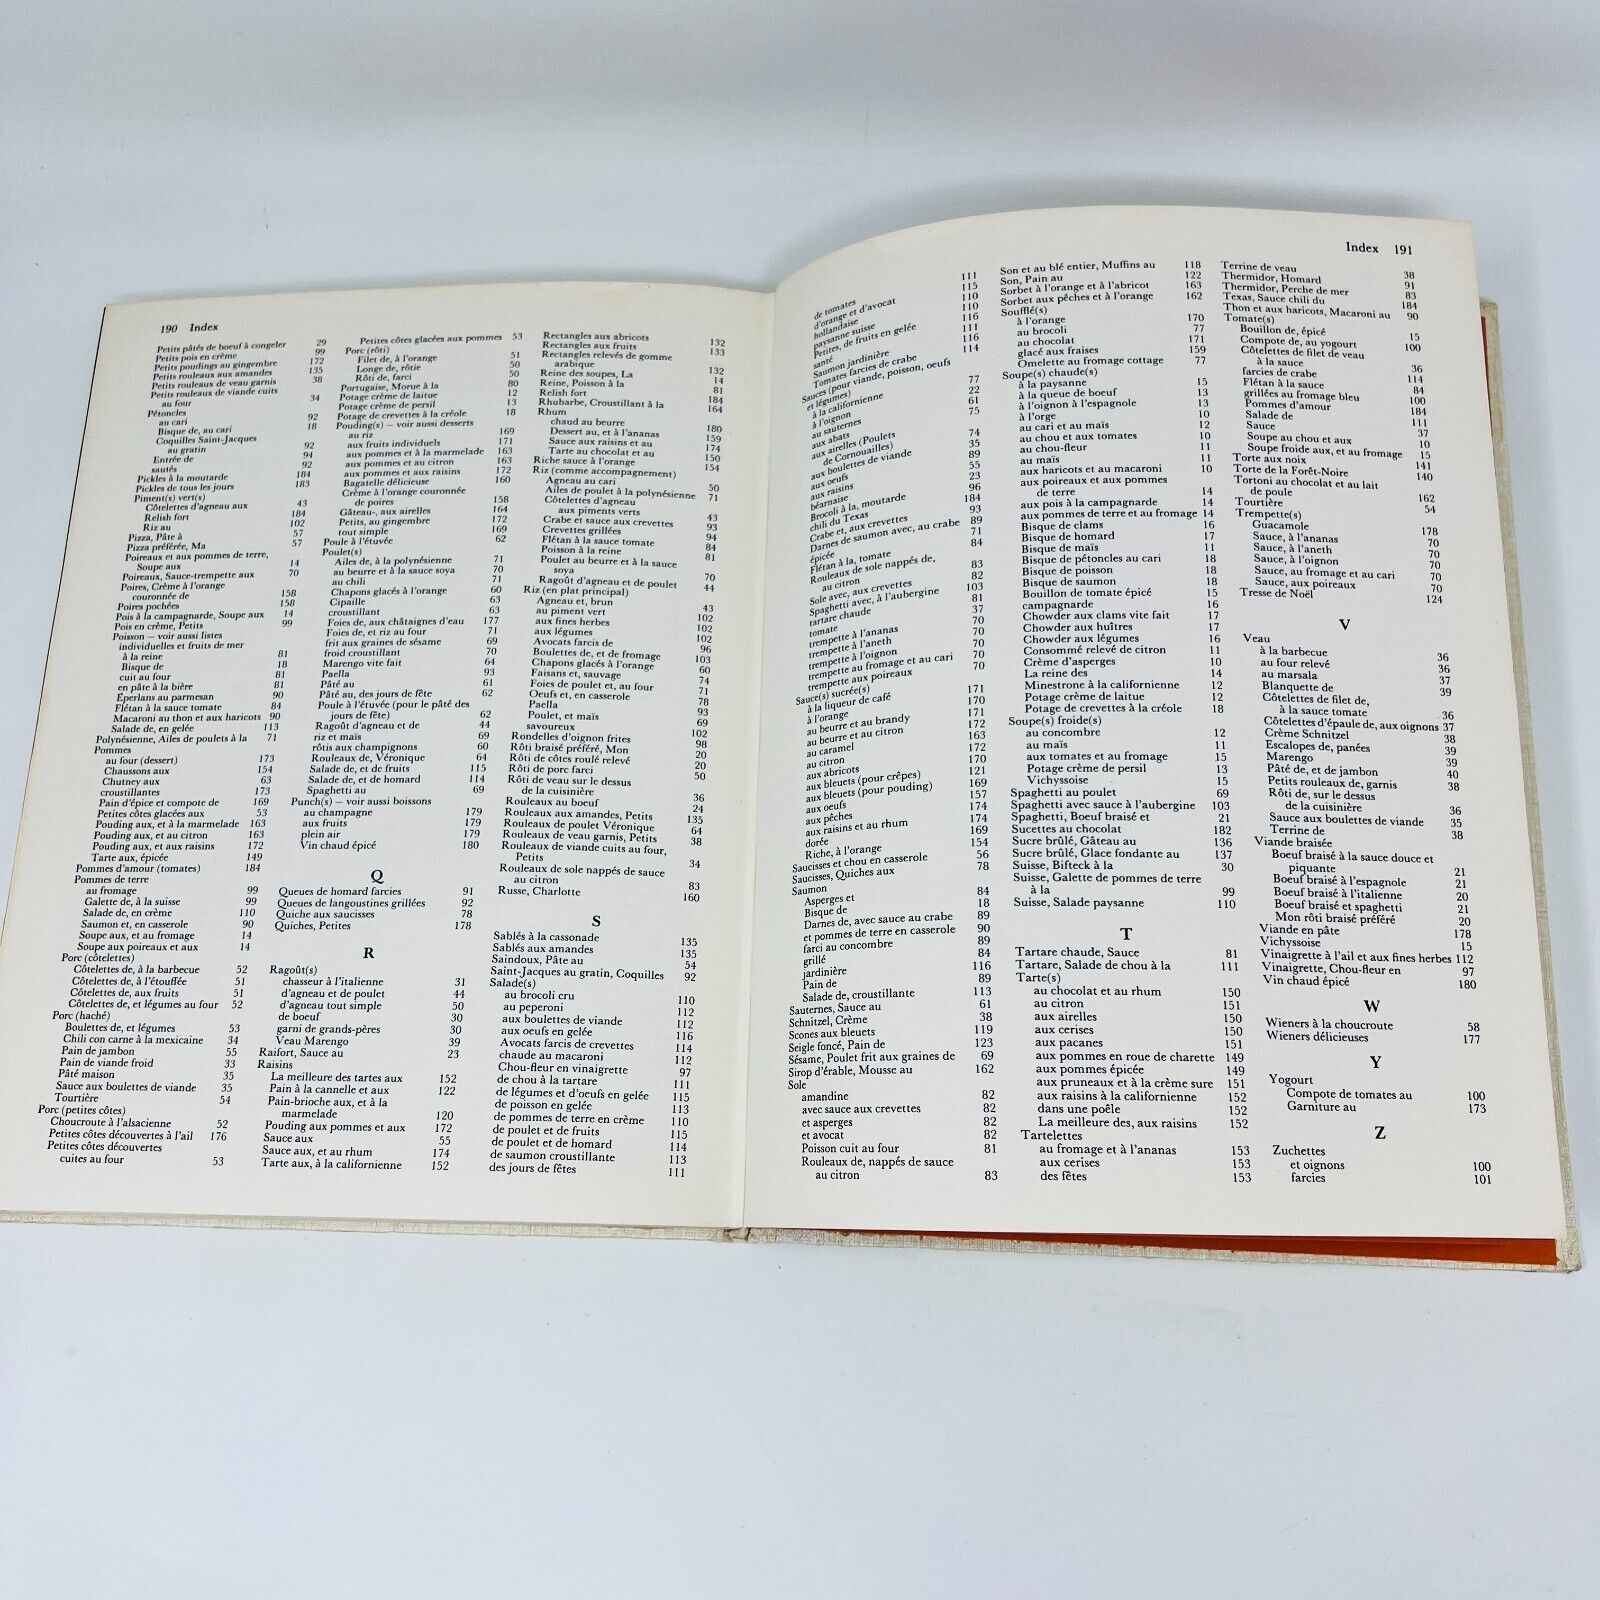 190 Index
Petits pâtés de boeuf à congeler 29
Petits pois en crème 99
Petits poudings au gingembre 172
Petits rouleaux aux amandes 135
Petits rouleaux de veau garnis 38
Petits rouleaux de viande cuits
au four 34
Pétoncles
au cari 92
Bisque de, au cari 18
Coquilles Saint-Jacques
au gratin 92
Entrée de 94
sautés 92
Pickles à la moutarde 184
Pickles de tous les jours 183
Piment(s) vert(s)
Côtelettes d'agneau aux 43
Relish fort 184
Riz au 102
Pizza, Pâte à 57
Pizza préférée, Ma 57
Poireaux et aux pommes de terre,
Soupe aux 14
Poireaux, Sauce-trempette aux 70
Poires, Crème à l'orange
couronnée de 158
Poires pochées 158
Pois à la campagnarde, Soupe aux 14
Pois en crème, Petits 99
Poisson — voir aussi listes
individuelles et fruits de mer
à la reine 81
Bisque de 18
cuit au four 81
en pâte à la bière 81
Éperlans au parmesan 90
Flétan à la sauce tomate 84
Macaroni au thon et aux haricots 90
Salade de, en gelée 113
Polynésienne, Ailes de poulets à la 71
Pommes
au four (dessert) 173
Chaussons aux 154
Chutney aux 63
croustillantes 173
Pain d'épice et compote de 169
Petites côtes glacées aux 53
Pouding aux, et à la marmelade 163
Pouding aux, et au citron 163
Pouding aux, et aux raisins 172
Tarte aux, épicée 149
Pommes d'amour (tomates) 184
Pommes de terre
au fromage 99
Galette de, à la suisse 99
Salade de, en crème 110
Saumon et, en casserole 90
Soupe aux, et au fromage 14
Soupe aux poireaux et aux 14
Porc (côtelettes)
Côtelettes de, à la barbecue 52
Côtelettes de, à l'étouffée 51
Côtelettes de, aux fruits 51
Côtelettes de, et légumes au four 52
Porc (haché)
Boulettes de, et légumes 53
Chili con carne à la mexicaine 34
Pain de jambon 55
Pain de viande froid 33
Pâté maison 35
Sauce aux boulettes de viande 35
Tourtière 54
Porc (petites côtes)
Choucroute à l'alsacienne 52
Petites côtes découvertes à l'ail 176
Petites côtes découvertes
cuites au four 53
Petites côtes glacées aux pommes 53
Porc (rôti)
Filet de, à l'orange 51
Longe de, rôtie 50
Rôti de, farci 50
Portugaise, Morue à la 80
Potage crème de laitue 12
Potage crème de persil 13
Potage de crevettes à la créole 18
Pouding(s) — voir aussi desserts
au riz 169
aux fruits individuels 171
aux pommes et à la marmelade 163
aux pommes et au citron 163
aux pommes et aux raisins 172
Bagatelle délicieuse 160
Crème à l'orange couronnée
de poires 158
Gâteau-, aux airelles 164
Petits, au gingembre 172
tout simple 169
Poule à l'étuvée 62
Poulet(s)
Ailes de, à la polynésienne 71
au beurre et à la sauce soya 70
au chili 71
Chapons glacés à l'orange 60
Cipaille 63
croustillant 63
Foies de, aux châtaignes d'eau 177
Foies de, et riz au four 71
frit aux graines de sésame 69
froid croustillant 70
Marengo vite fait 64
Paella 93
Pâté au 61
Pâté au, des jours de fête 62
Poule à l'étuvée (pour le pâté des
jours de fête) 62
Ragoût d'agneau et de 44
riz et maïs 69
rôtis aux champignons 60
Rouleaux de, Véronique 64
Salade de, et de fruits 115
Salade de, et de homard 114
Spaghetti au 69
Punch(s) — voir aussi boissons
au champagne 179
aux fruits 179
plein air 179
Vin chaud épicé 180
Q
Queues de homard farcies 91
Queues de langoustines grillées 92
Quiche aux saucisses 78
Quiches, Petites 178
R
Ragoût(s)
chasseur à l'italienne 31
d'agneau et de poulet 44
d'agneau tout simple 50
de boeuf 30
garni de grands-pères 30
Veau Marengo 39
Raifort, Sauce au 23
Raisins
La meilleure des tartes aux 152
Pain à la cannelle et aux 122
Pain-brioche aux, et à la
marmelade 120
Pouding aux pommes et aux 172
Sauce aux 55
Sauce aux, et au rhum 174
Tarte aux, à la californienne 152
Rectangles aux abricots 132
Rectangles aux fruits 133
Rectangles relevés de gomme
arabique 132
Reine des soupes, La 14
Reine, Poisson à la 81
Relish fort 184
Rhubarbe, Croustillant à la 164
Rhum
chaud au beurre 180
Dessert au, et à l'ananas 159
Sauce aux raisins et au 174
Tarte au chocolat et au 150
Riche sauce à l'orange 154
Riz (comme accompagnement)
Agneau au cari 50
Ailes de poulet à la polynésienne 71
Côtelettes d'agneau
aux piments verts 43
Crabe et sauce aux crevettes 93
Crevettes grillées 94
Flétan à la sauce tomate 84
Poisson à la reine 81
Poulet au beurre et à la sauce
soya 70
Ragoût d'agneau et de poulet 44
Riz (en plat principal)
Agneau et, brun 43
au piment vert 102
aux fines herbes 102
aux légumes 102
Avocats farcis de 96
Boulettes de, et de fromage 103
Chapons glacés à l'orange 60
Faisans et, sauvage 74
Foies de poulet et, au four 71
Oeufs et, en casserole 78
Paella 93
Poulet, et maïs 69
savoureux 102
Rondelles d'oignon frites 98
Rôti braisé préféré, Mon 20
Rôti de côtes roulé relevé 20
Rôti de porc farci 50
Rôti de veau sur le dessus
de la cuisinière 36
Rouleaux au boeuf 24
Rouleaux aux amandes, Petits 135
Rouleaux de poulet Véronique 64
Rouleaux de veau garnis, Petits 38
Rouleaux de viande cuits au four,
Petits 34
Rouleaux de sole nappés de sauce
au citron 83
Russe, Charlotte 160
S
Sablés à la cassonade 135
Sablés aux amandes 135
Saindoux, Pâte au 54
Saint-Jacques au gratin, Coquilles 92
Salade(s)
au brocoli cru 110
au peperoni 112
aux boulettes de viande 112
aux oeufs en gelée 116
Avocats farcis de crevettes 114
chaude au macaroni 112
Chou-fleur en vinaigrette 97
de chou à la tartare 111
de légumes et d'oeufs en gelée 115
de poisson en gelée 113
de pommes de terre en crème 110
de poulet et de fruits 115
de poulet et de homard 114
de saumon croustillante 113
des jours de fêtes 111
Index 191
de tomates 111
d'orange et d'avocat 115
hollandaise 110
paysanne suisse 110
Petites, de fruits en gelée 116
santé 111
Saumon jardinière 116
Tomates farcies de crabe 114
Sauces (pour viande, poisson, oeufs
et légumes)
à la californienne 77
à l'oignon 22
au sauternes 61
aux abats 75
aux airelles (Poulets
de Cornouailles) 74
aux boulettes de viande 35
aux oeufs 89
aux raisins 55
béarnaise 23
Brocoli à la, moutarde 96
chili du Texas 184
Crabe et, aux crevettes 93
Darnes de saumon avec, au crabe 89
épicée 71
Flétan à la, tomate 84
Rouleaux de sole nappés de,
au citron 83
Sole avec, aux crevettes 82
Spaghetti avec, à l'aubergine 103
tartare chaude 81
tomate 37
trempette à l'ananas 70
trempette à l'aneth 70
trempette à l'oignon 70
trempette au fromage et au cari 70
trempette aux poireaux 70
Sauce(s) sucrée(s)
à la liqueur de café 171
à l'orange 170
au beurre et au brandy 171
au beurre et au citron 172
au caramel 163
au citron 172
aux abricots 170
aux bleuets (pour crêpes) 121
aux bleuets (pour pouding) 169
aux oeufs 157
aux pêches 174
aux raisins et au rhum 174
dorée 169
Riche, à l'orange 154
Saucisses et chou en casserole 56
Saucisses, Quiches aux 78
Saumon
Asperges et 84
Bisque de 18
Darnes de, avec sauce au crabe 89
et pommes de terre en casserole 90
farci au concombre 89
grillé 84
jardinière 116
Pain de 89
Salade de, croustillante 113
Sauternes, Sauce au 61
Schnitzel, Crème 38
Scones aux bleuets 119
Seigle foncé, Pain de 123
Sésame, Poulet frit aux graines de 69
Sirop d'érable, Mousse au 162
Sole
amandine 82
avec sauce aux crevettes 82
et asperges 82
et avocat 82
Poisson cuit au four 81
Rouleaux de, nappés de sauce
au citron 83
Son et au blé entier, Muffins au 118
Son, Pain au 122
Sorbet à l'orange et à l'abricot 163
Sorbet aux pêches et à l'orange 162
Soufflé(s)
à l'orange 170
au brocoli 77
au chocolat 171
glacé aux fraises 159
Omelette au fromage cottage 77
Soupe(s) chaude(s)
à la paysanne 15
à la queue de boeuf 13
à l'oignon à l'espagnole 13
à l'orge 10
au cari et au maïs 12
au chou et aux tomates 10
au chou-fleur 11
au maïs 11
aux haricots et au macaroni 10
aux poireaux et aux pommes
de terre 14
aux pois à la campagnarde 14
aux pommes de terre et au fromage 14
Bisque de clams 16
Bisque de homard 17
Bisque de maïs 11
Bisque de pétoncles au cari 18
Bisque de poisson 18
Bisque de saumon 18
Bouillon de tomate épicé 15
campagnarde 16
Chowder aux clams vite fait 17
Chowder aux huîtres 17
Chowder aux légumes 16
Consommé relevé de citron 11
Crème d'asperges 10
La reine des 14
Minestrone à la californienne 12
Potage crème de laitue 12
Potage de crevettes à la créole 18
Soupe(s) froide(s)
au concombre 12
au maïs 11
aux tomates et au fromage 15
Potage crème de persil 13
Vichyssoise 15
Spaghetti au poulet 69
Spaghetti avec sauce à l'aubergine 103
Spaghetti, Boeuf braisé et 21
Sucettes au chocolat 182
Sucre brûlé, Gâteau au 136
Sucre brûlé, Glace fondante au 137
Suisse, Bifteck à la 30
Suisse, Galette de pommes de terre
à la 99
Suisse, Salade paysanne 110
T
Tartare chaude, Sauce 81
Tartare, Salade de chou à la 111
Tarte(s)
au chocolat et au rhum 150
au citron 151
aux airelles 150
aux cerises 150
aux pacanes 151
aux pommes en roue de charette 149
aux pommes épicées 149
aux pruneaux et à la crème sure 151
aux raisins à la californienne 152
dans une poêle 152
La meilleure des, aux raisins 152
Tartelettes
au fromage et à l'ananas 153
aux cerises 153
des fêtes 153
Terrine de veau 38
Thermidor, Homard 91
Thermidor, Perche de mer 83
Texas, Sauce chili du 184
Thon et aux haricots, Macaroni au 90
Tomate(s)
Bouillon de, épicé 15
Compote de, au yogourt 100
Côtelettes de filet de veau
à la sauce 36
farcies de crabe 114
Flétan à la sauce 84
grillées au fromage bleu 100
Pommes d'amour 184
Salade de 111
Sauce 37
Soupe au chou et aux 10
Soupe froide aux, et au fromage 15
Torte aux noix 141
Torte de la Forêt-Noire 140
Tortoni au chocolat et au lait
de poule 162
Tourtière 54
Trempette(s)
Guacamole 178
Sauce, à l'ananas 70
Sauce, à l'aneth 70
Sauce, à l'oignon 70
Sauce, au fromage et au cari 70
Sauce, aux poireaux 70
Tresse de Noël 124
V
Veau
à la barbecue 36
au four relevé 36
au marsala 37
Blanquette de 39
Côtelettes de filet de,
à la sauce tomate 36
Côtelettes d'épaule de, aux oignons 37
Crème Schnitzel 38
Escalopes de, panées 39
Marengo 39
Pâté de, et de jambon 40
Petits rouleaux de, garnis 38
Rôti de, sur le dessus
de la cuisinière 36
Sauce aux boulettes de viande 35
Terrine de 38
Viande braisée
Boeuf braisé à la sauce douce et
piquante 21
Boeuf braisé à l'espagnole 21
Boeuf braisé à l'italienne 20
Boeuf braisé et spaghetti 21
Mon rôti braisé préféré 20
Viande en pâte 178
Vichyssoise 15
Vinaigrette à l'ail et aux fines herbes 112
Vinaigrette, Chou-fleur en 97
Vin chaud épicé 180
W
Wieners à la choucroute 58
Wieners délicieuses 177
Y
Yogourt
Compote de tomates au 100
Garniture au 173
Z
Zuchettes
et oignons 100
farcies 101